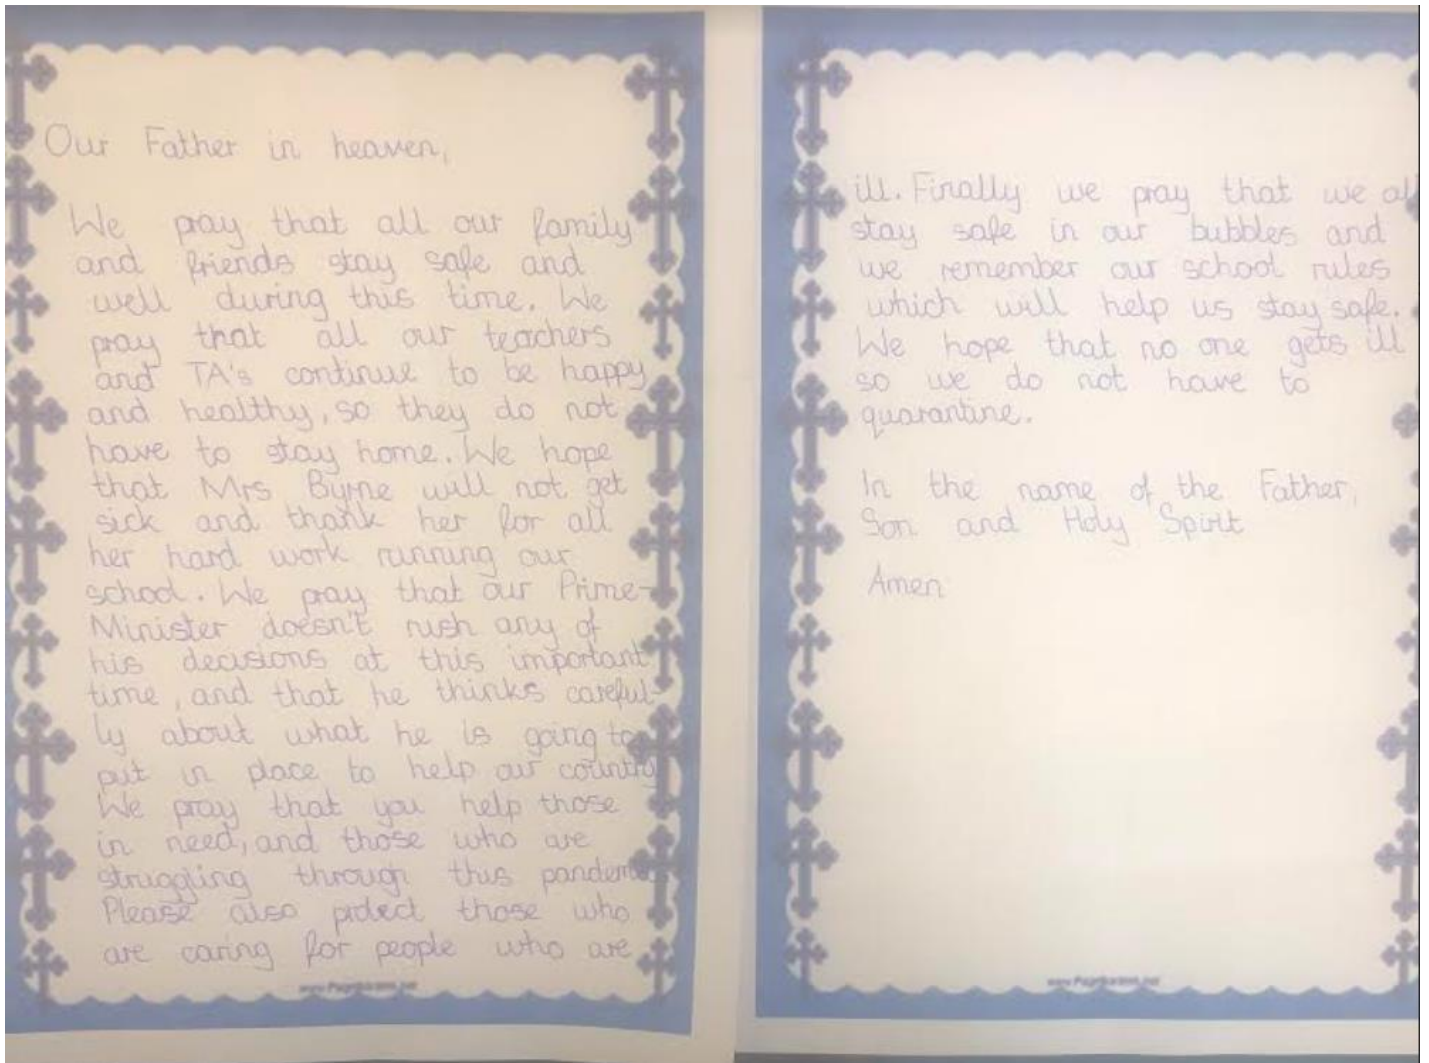 Our Father in heaven,
We pray that all our family
and friends stay safe and
well during this time. We
pray that all our teachers
and TA's continue to be happy
and healthy, so they do not
have to stay home. We hope
that Mrs Byrne will not get
sick and thank her for all
her hard work running our
school. We pray that our Prime-
Minister doesn't rush any of
his decisions at this important
time, and that he thinks careful-
ly about what he is going to
put in place to help our country
We pray that you help those
in need, and those who are
struggling through this
Please also protect those who
are caring for people who are
ill. Finally we pray that we al
stay safe in our bubbles and
we remember our school rules
which will help us stay safe.
We hope that no one gets ill
so we do not have to
quarantine.
In the name of the Father,
Son and Holy Spirit
Amen